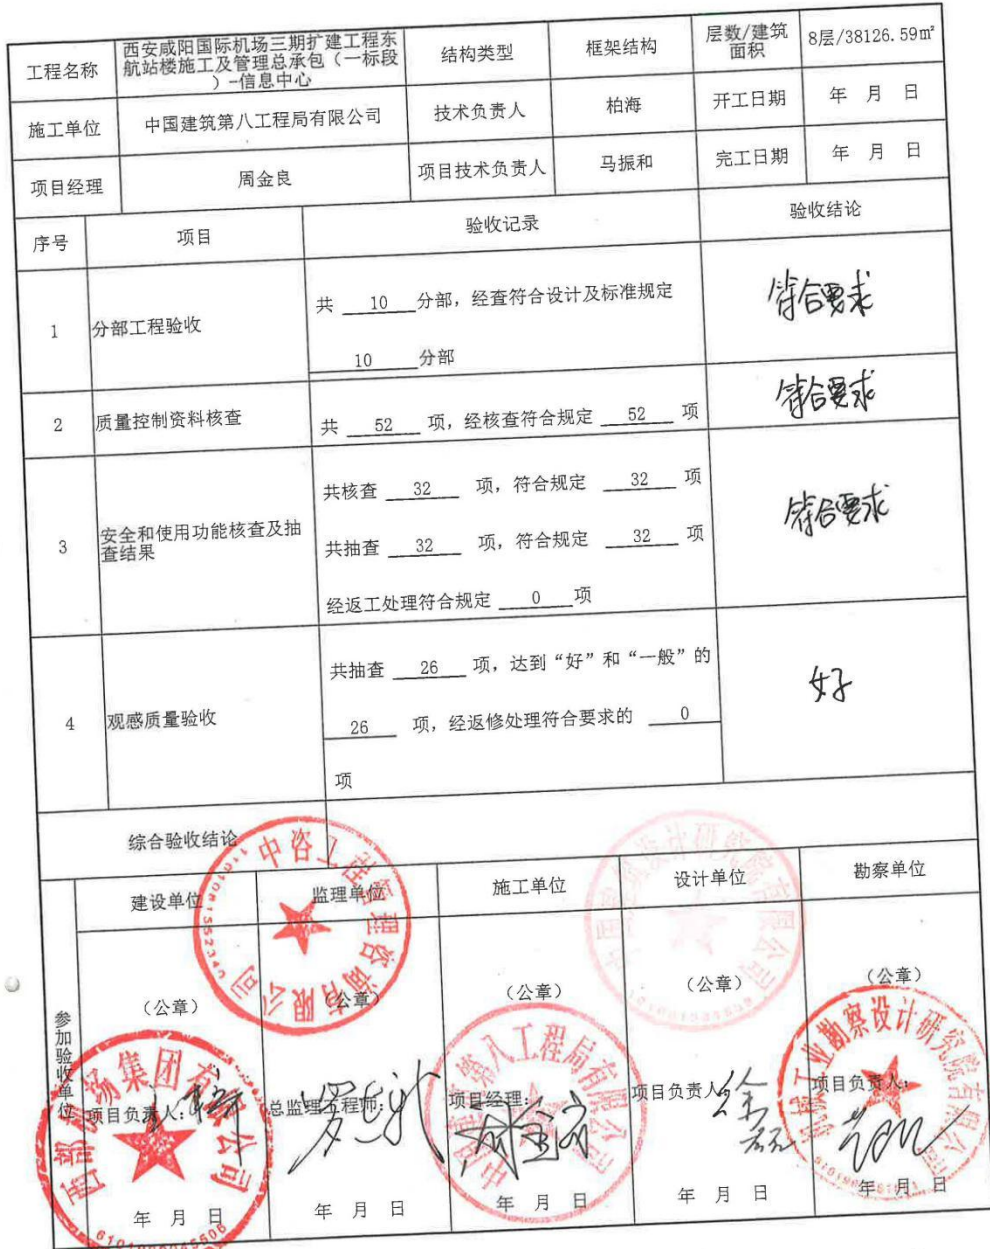 工程名称
西安咸阳国际机场三期扩建工程东
航站楼施工及管理总承包（一标段
）-信息中心
结构类型
框架结构
层数/建筑
面积
8层/38126.59㎡
施工单位
中国建筑第八工程局有限公司
技术负责人
柏海
开工日期
年 月 日
项目经理
周金良
项目技术负责人
马振和
完工日期
年 月 日
序号
项目
验收记录
验收结论
1
分部工程验收
共 10 分部，经查符合设计及标准规定
10 分部
符合要求
2
质量控制资料核查
共 52 项，经核查符合规定 52 项
符合要求
3
安全和使用功能核查及抽
查结果
共核查 32 项，符合规定 32 项
共抽查 32 项，符合规定 32 项
经返工处理符合规定 0 项
符合要求
4
观感质量验收
共抽查 26 项，达到“好”和“一般”的
26 项，经返修处理符合要求的 0
项
好
综合验收结论
参加验收单位
建设单位
监理单位
施工单位
设计单位
勘察单位
（公章）
（公章）
（公章）
（公章）
（公章）
项目负责人：
总监理工程师：
项目经理：
项目负责人
项目负责人：
年 月 日
年 月 日
年 月 日
年 月 日
年 月 日
中咨工程管理咨询有限公司
西部机场集团有限公司